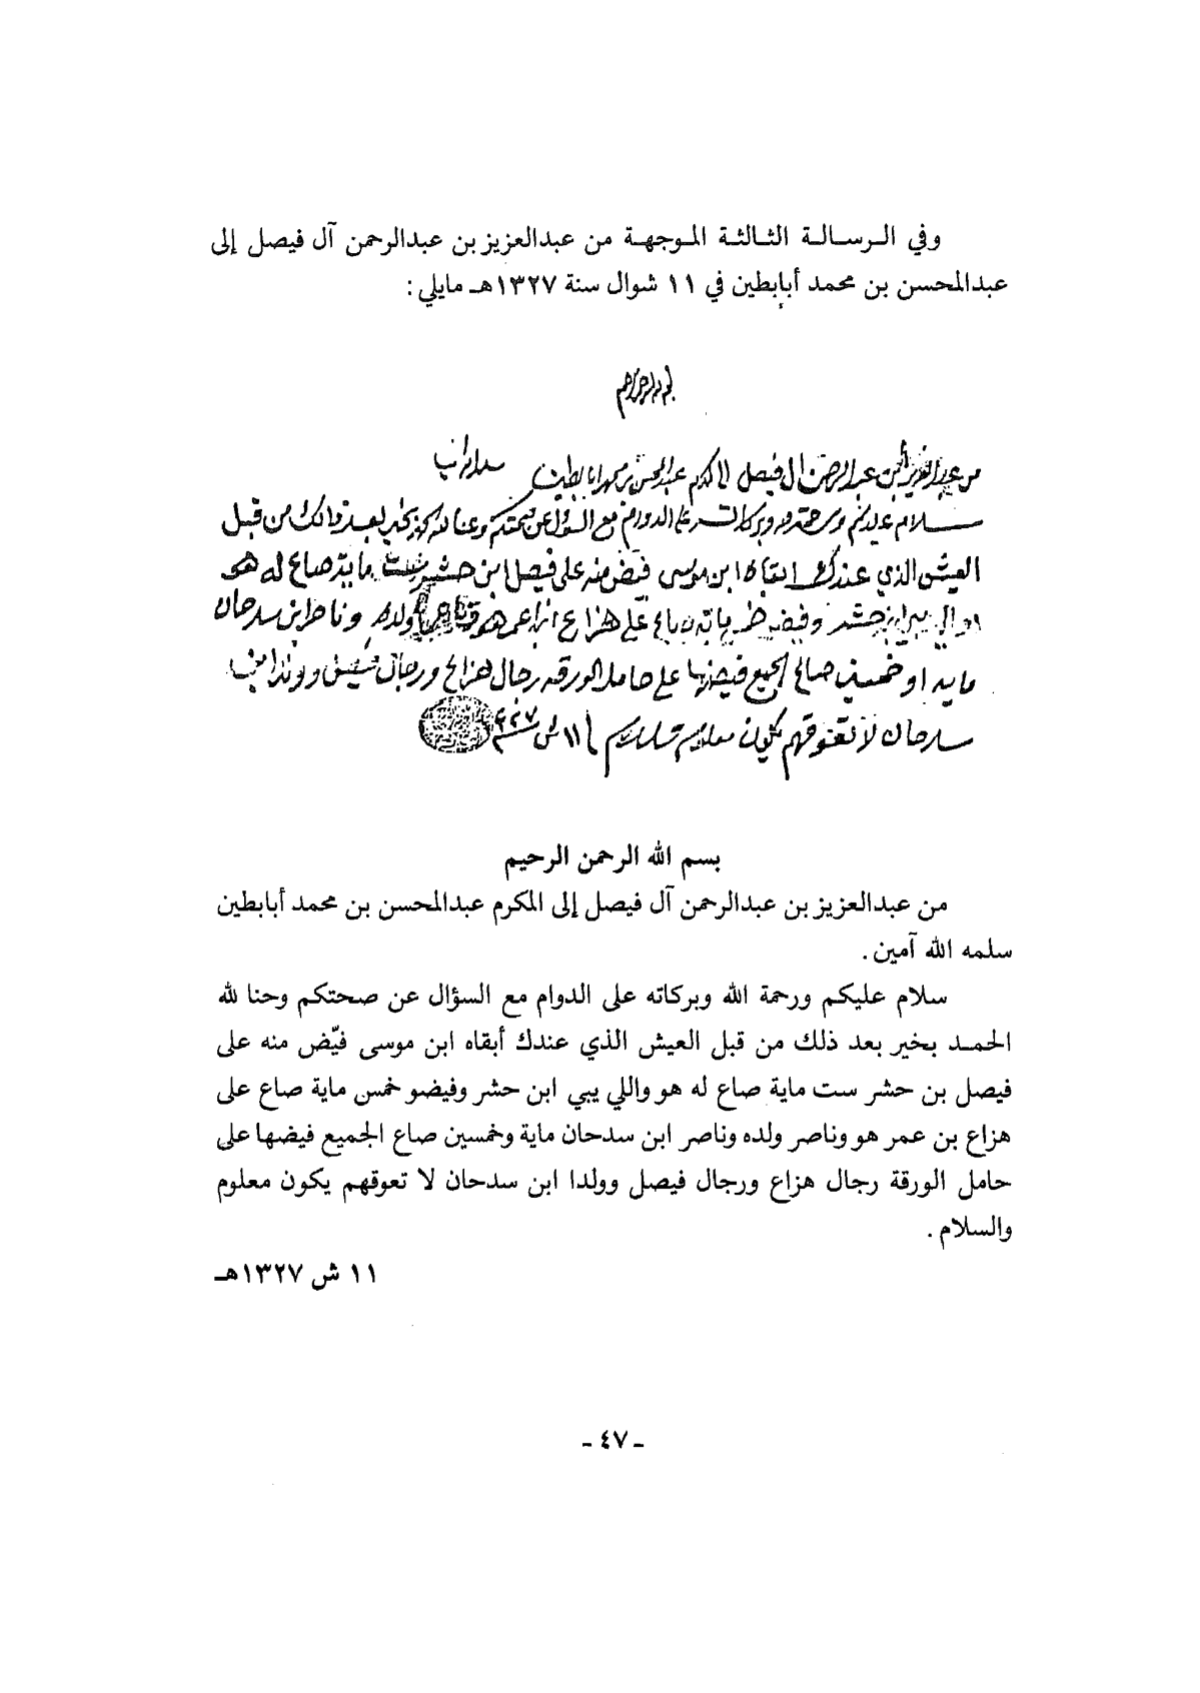 وفي الـرسـالـة الثـالثـة المـوجهـة من عبدالعزيز بن عبدالرحمن آل فيصل إلى
عبدالمحسن بن محمد أبابطين في ١١ شوال سنة ١٣٢٧هـ مايلي :
من عبدالعزيز ابن عبدالرحمن ال فيصل الى المكرم عبدالمحسن بن محمد ابابطين سلمه الله
سلام عليكم ورحمة الله وبركاته على الدوام مع السؤال عن صحتكم وحنا لله الحمد بخير بعد ذالك من قبل
العيش الذي عندك ابقاه ابن موسى فيض منه على فيصل ابن حشر ست ماية صاع له هو
صاع على هزاع ابن عمر هو وناصر ولده وناصر ابن سدحان
مايه وخمسين صاع الجميع فيضها على حامل الورقه رجال هزاع ورجال فيصل وولدا ابن
سدحان لا تعوقهم يكون معلوم والسلام ١١ ش ١٣٢٧
بسم الله الرحمن الرحيم
من عبدالعزيز بن عبدالرحمن آل فيصل إلى المكرم عبدالمحسن بن محمد أبابطين
سلمه الله آمين .
سلام عليكم ورحمة الله وبركاته على الدوام مع السؤال عن صحتكم وحنا لله
الحمـد بخير بعد ذلك من قبل العيش الذي عندك أبقاه ابن موسى فيّض منه على
فيصل بن حشر ست ماية صاع له هو واللي يبي ابن حشر وفيضو خمس ماية صاع على
هزاع بن عمر هو وناصر ولده وناصر ابن سدحان ماية وخمسين صاع الجميع فيضها على
حامل الورقة رجال هزاع ورجال فيصل وولدا ابن سدحان لا تعوقهم يكون معلوم
والسلام .
١١ ش ١٣٢٧هـ
ـ ٤٧ ـ